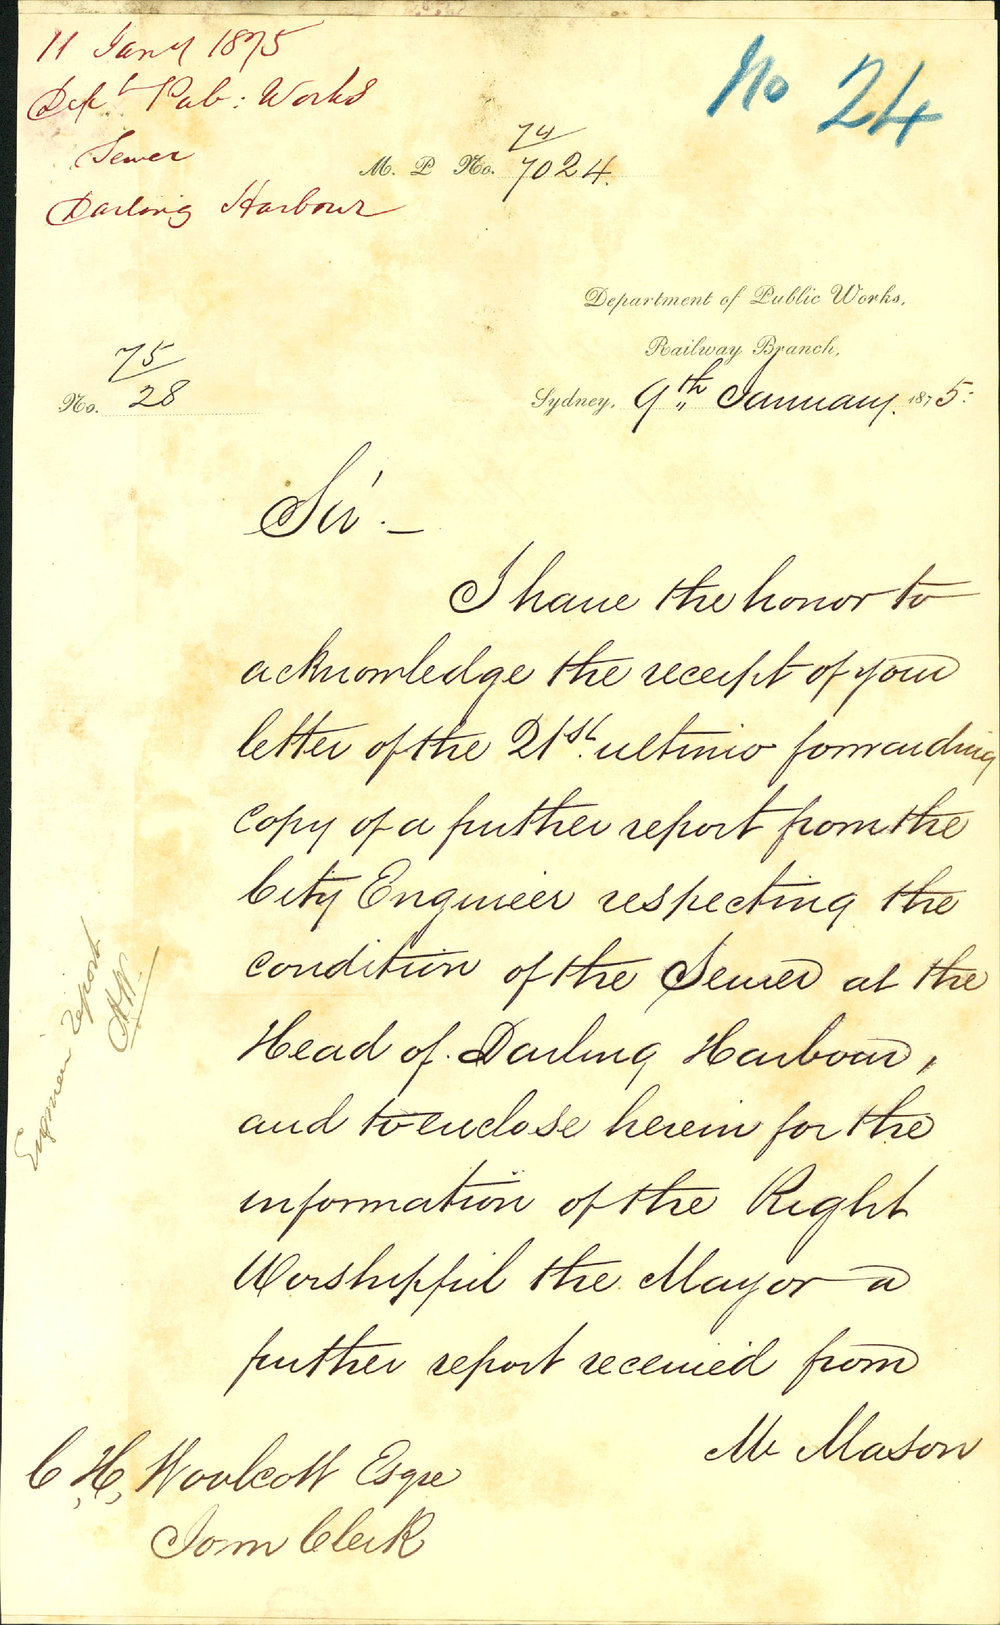 11 Jany 1875
Dept Pub: Works
Sewer
Darling Harbour
No 24
M. P No. 74/7024.
Department of Public Works,
Railway Branch,
No. 75/28
Sydney, 9th January 1875.
Sir.—
I have the honor to
acknowledge the receipt of your
letter of the 21st. ultimo forwarding
copy of a further report from the
City Engineer respecting the
condition of the Sewer at the
Head of Darling Harbour,
and to enclose herein for the
information of the Right
Worshipful the Mayor a
further report received from
Mr Mason
C. H. Woolcott Esqre
Town Clerk
Engineer report